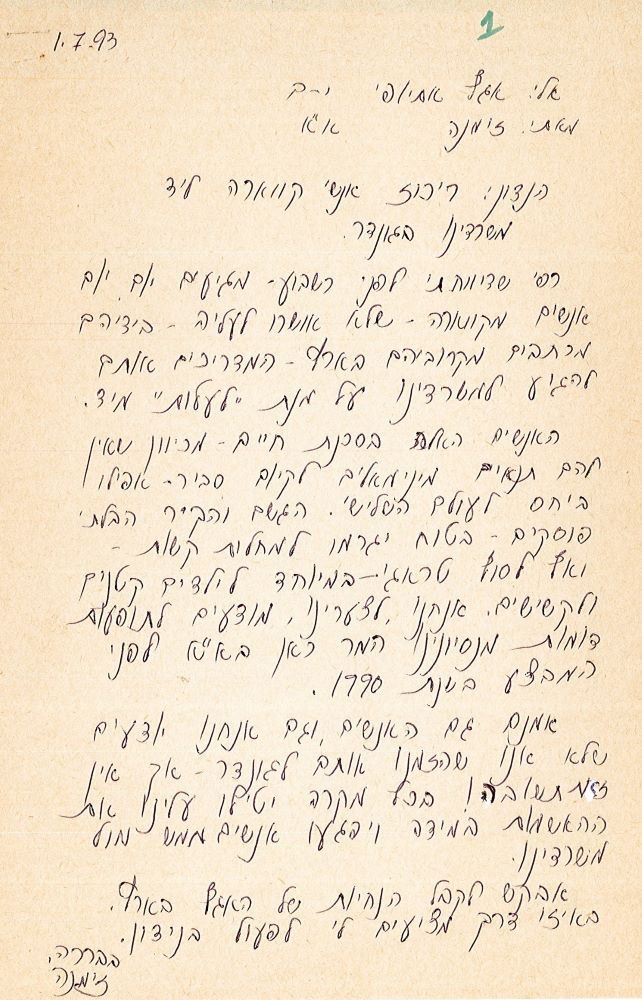 1
1.7.93
אל: אגף אתיופי י-ם
מאת: זימנה א"א
הנדון: ריכוז אנשי קווארה ליד
משרדינו בגונדר.
כפי שדיווחתי לפני כשבוע - מגיעים יום יום
אנשים מקווארה - שלא אושרו לעליה - בידיהם
מכתבים מקרוביהם בארץ - המדריכים אותם
להגיע למשרדינו על מנת "לעלות" מיד.
האנשים האלה בסכנת חיים - מכיוון שאין
להם תנאים מינימאלים לקיום סביר - אפילו
ביחס לעולם השלישי. הגשם והקור הבלתי
פוסקים - בטוח יגרמו למחלות קשות -
ואף לסוף טראגי - במיוחד לילדים קטנים
ולקשישים. אנחנו, לצערינו, מודעים לתופעות
דומות מנסיונינו המר כאן בא"א לפני
המבצע בשנת 1990.
אמנם גם האנשים, וגם אנחנו יודעים
שלא אנו שהזמנו אותם לגונדר - אך אין
זאת תשובה! בכל מקרה יטילו עלינו את
ההאשמות במידה ויפגעו אנשים ממש מול
משרדינו.
אבקש לקבל הנחיות של האגף בארץ.
באיזו דרך מציעים לי לפעול בנידון.
בברכה,
זימנה